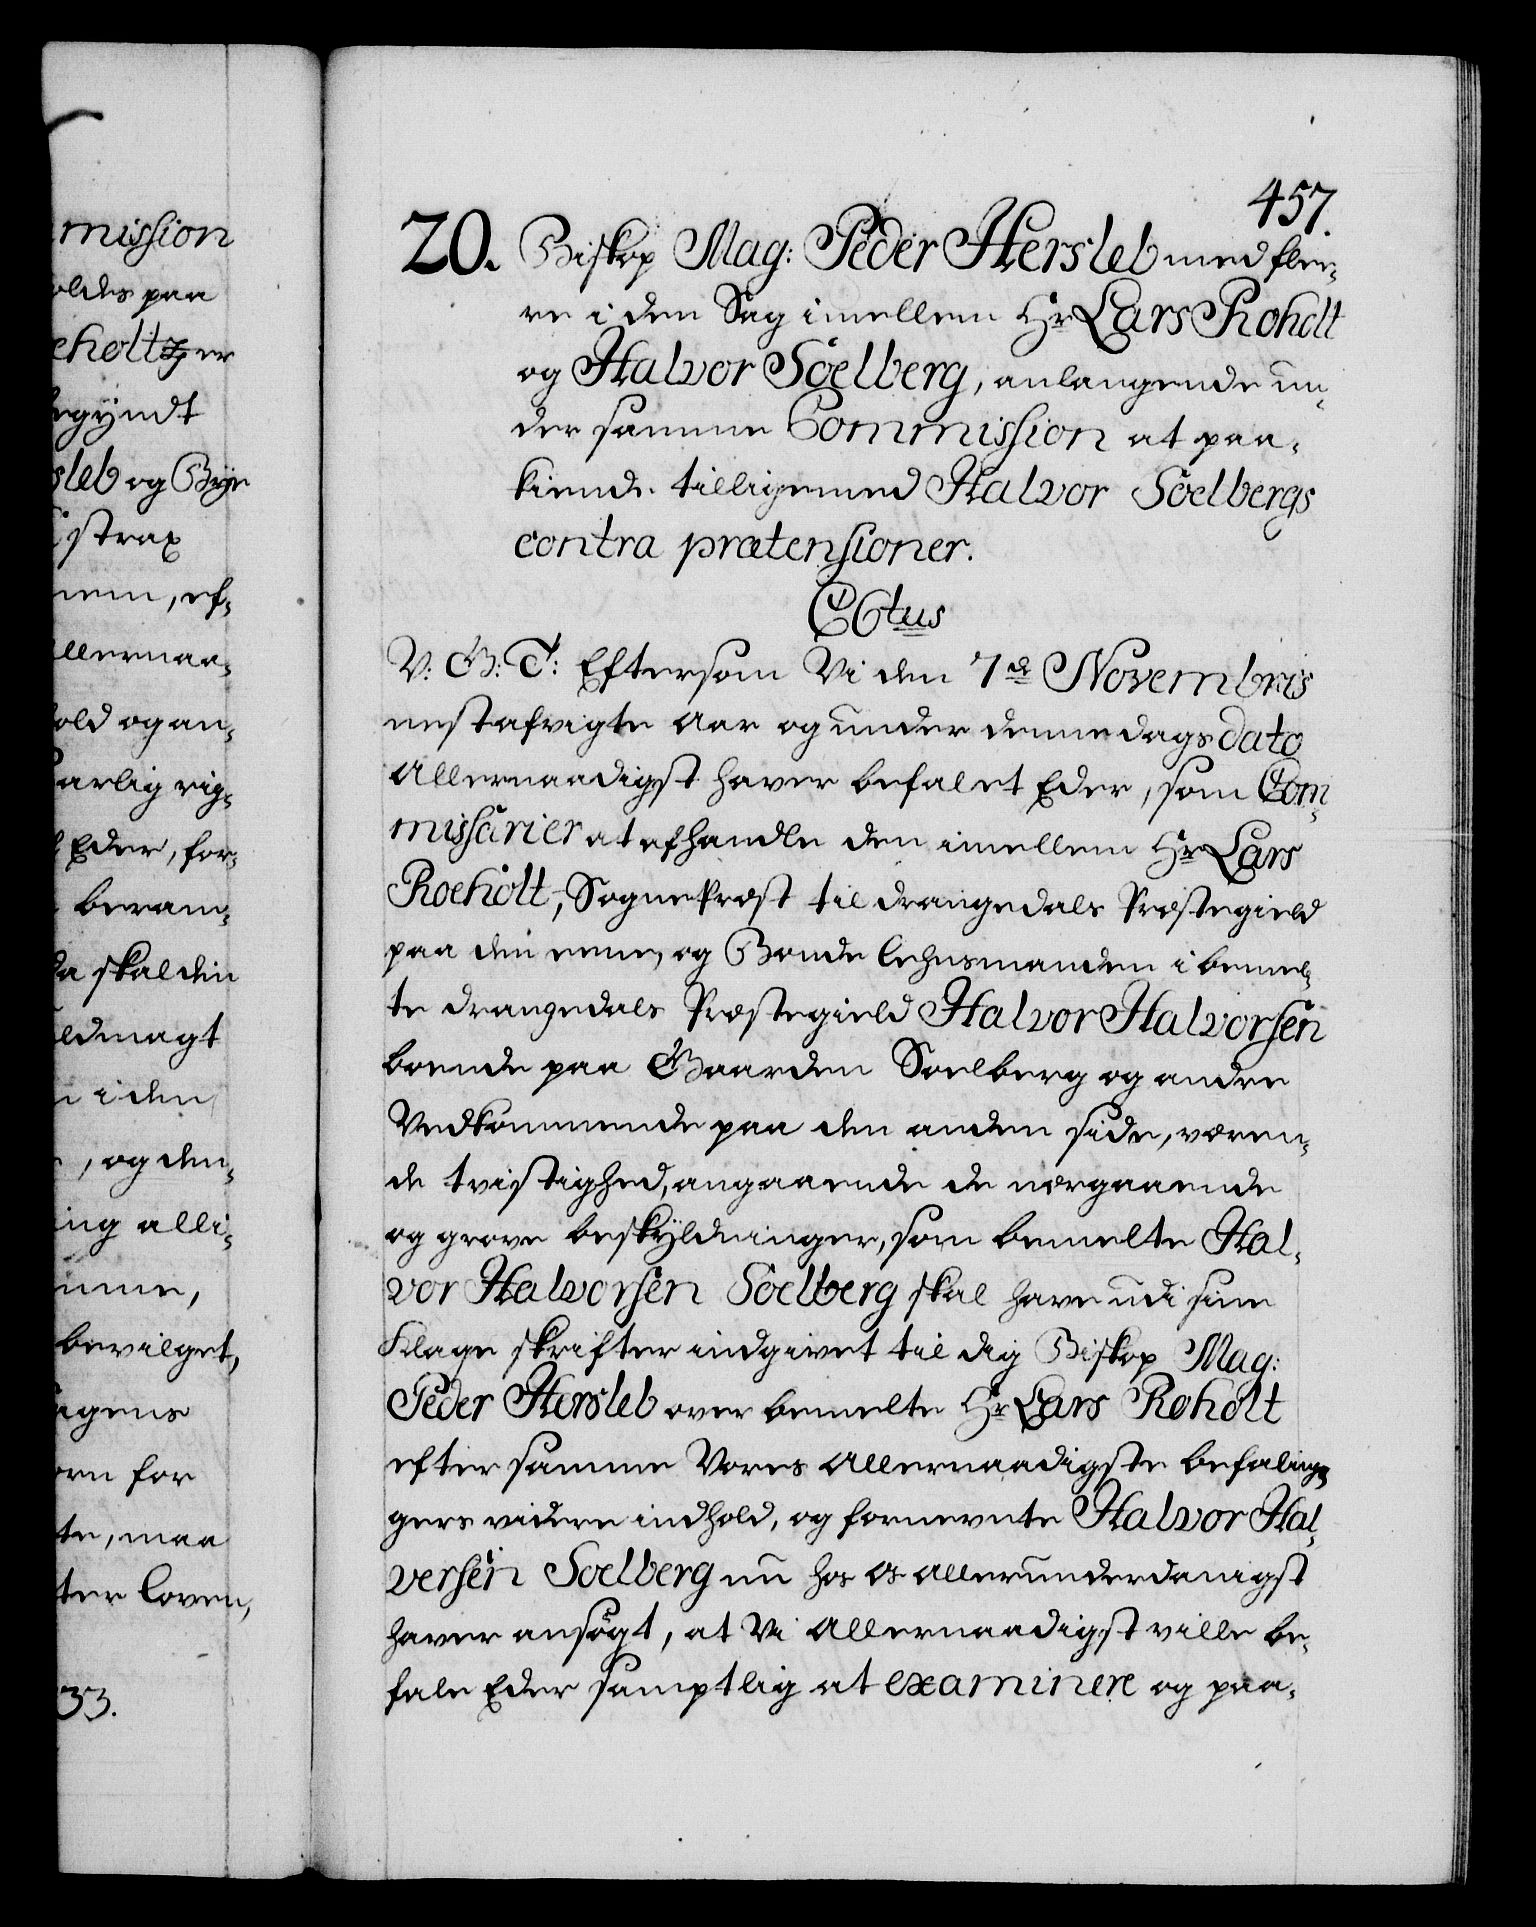 mission
oldes paa
eholtz er
begyndt
sleb og Brye
strax
nem, ef-
llernaa-
old og an-
arlig rig-
Eder, for-
beram-
da skal din
ldmagt
i den
, og den-
ing alli-
mme,
bevilget,
agens
orn for
te, maa
ter Loven,
33.
457.
20. Biskop Mag: Peder Hersleb med flee-
re i den Sag imellem Hr Lars Roholt
og Halvor Söelberg, anlangende un-
der samme Commission at paa-
kiende tilligemed Halvor Söelbergs
contra prætensioner.
C6tus
V: G: T: Eftersom Vi den 7de Novembris
nestafvigte Aar og under denne dags dato
Allernaadigst haver befalet Eder, som Com-
missarier at afhandle den imellem Hr Lars
Roeholt, SognePræst til Drangedals Præstegield
paa den eene, og Bonde Lehnsmanden i bemel-
te Drangedals Præstegield Halvor Halvorsen
boende paa Gaarden Soelberg og andre
Vedkommende paa den anden side, væren-
de tvistighed, angaaende de nærgaaende
og grove beskyldninger, som bemelte Hal-
vor Halvorsen Söelberg skal have udi sine
Klage skrifter indgivet til dig Biskop Mag:
Peder Hersleb over bemelte Hr Lars Roholt
efter samme Vores Allernaadigste befalin-
gers videre indhold, og fornevnte Halvor Hal-
versen Soelberg nu hos Os Allerunderdanigst
haver ansögt, at Vi Allernaadigst ville be-
fale Eder samptlig at examinere og paa-